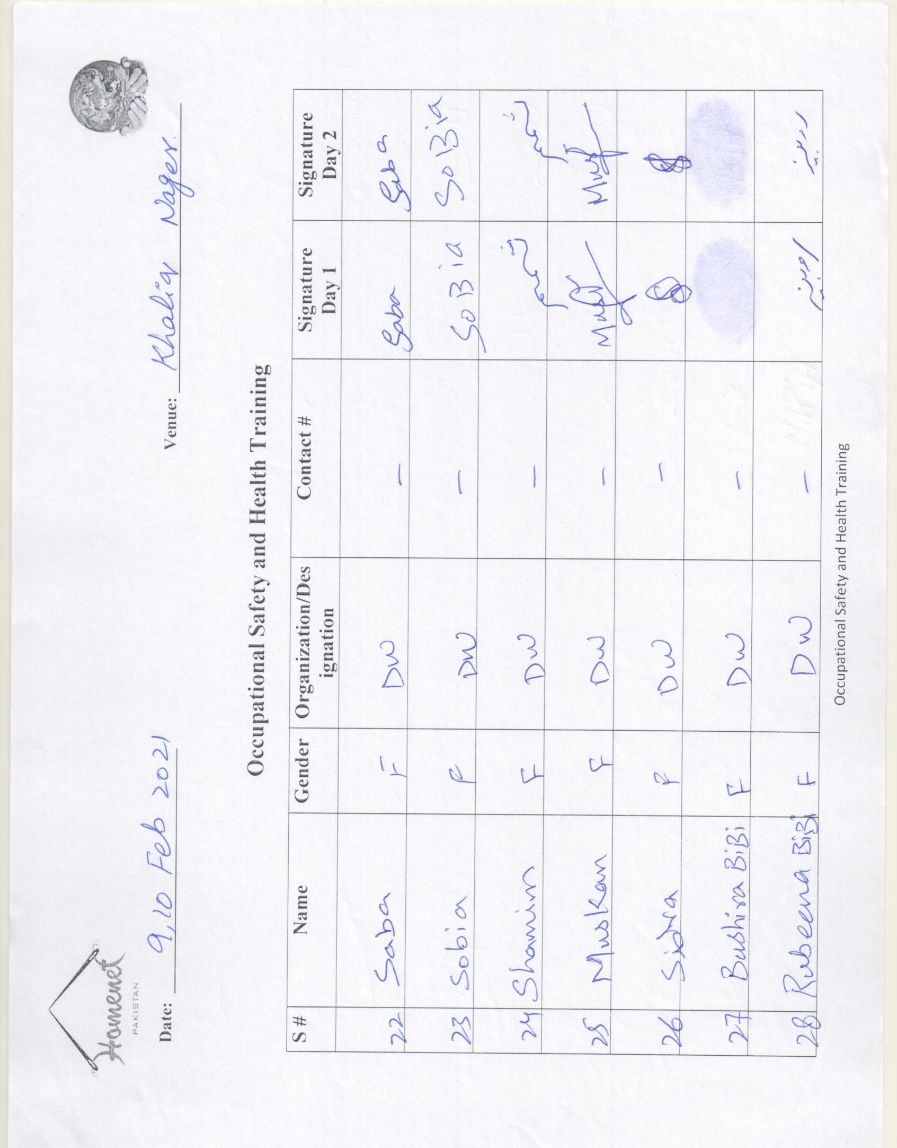 Homenet
PAKISTAN
Date: 9,10 Feb 2021 Venue: Khaliq Nager
Occupational Safety and Health Training
S # Name Gender Organization/Des ignation Contact # Signature Day 1 Signature Day 2
22 Saba F DW – Saba Saba
23 Sobia F DW – SoBia SoBia
24 Shamim F DW – شمیم شمیم
25 Muskan F DW –
26 Sidra F DW –
27 Bushira BiBi F DW –
28 Rubeena BiBi F DW – روبینہ روبینہ
Occupational Safety and Health Training